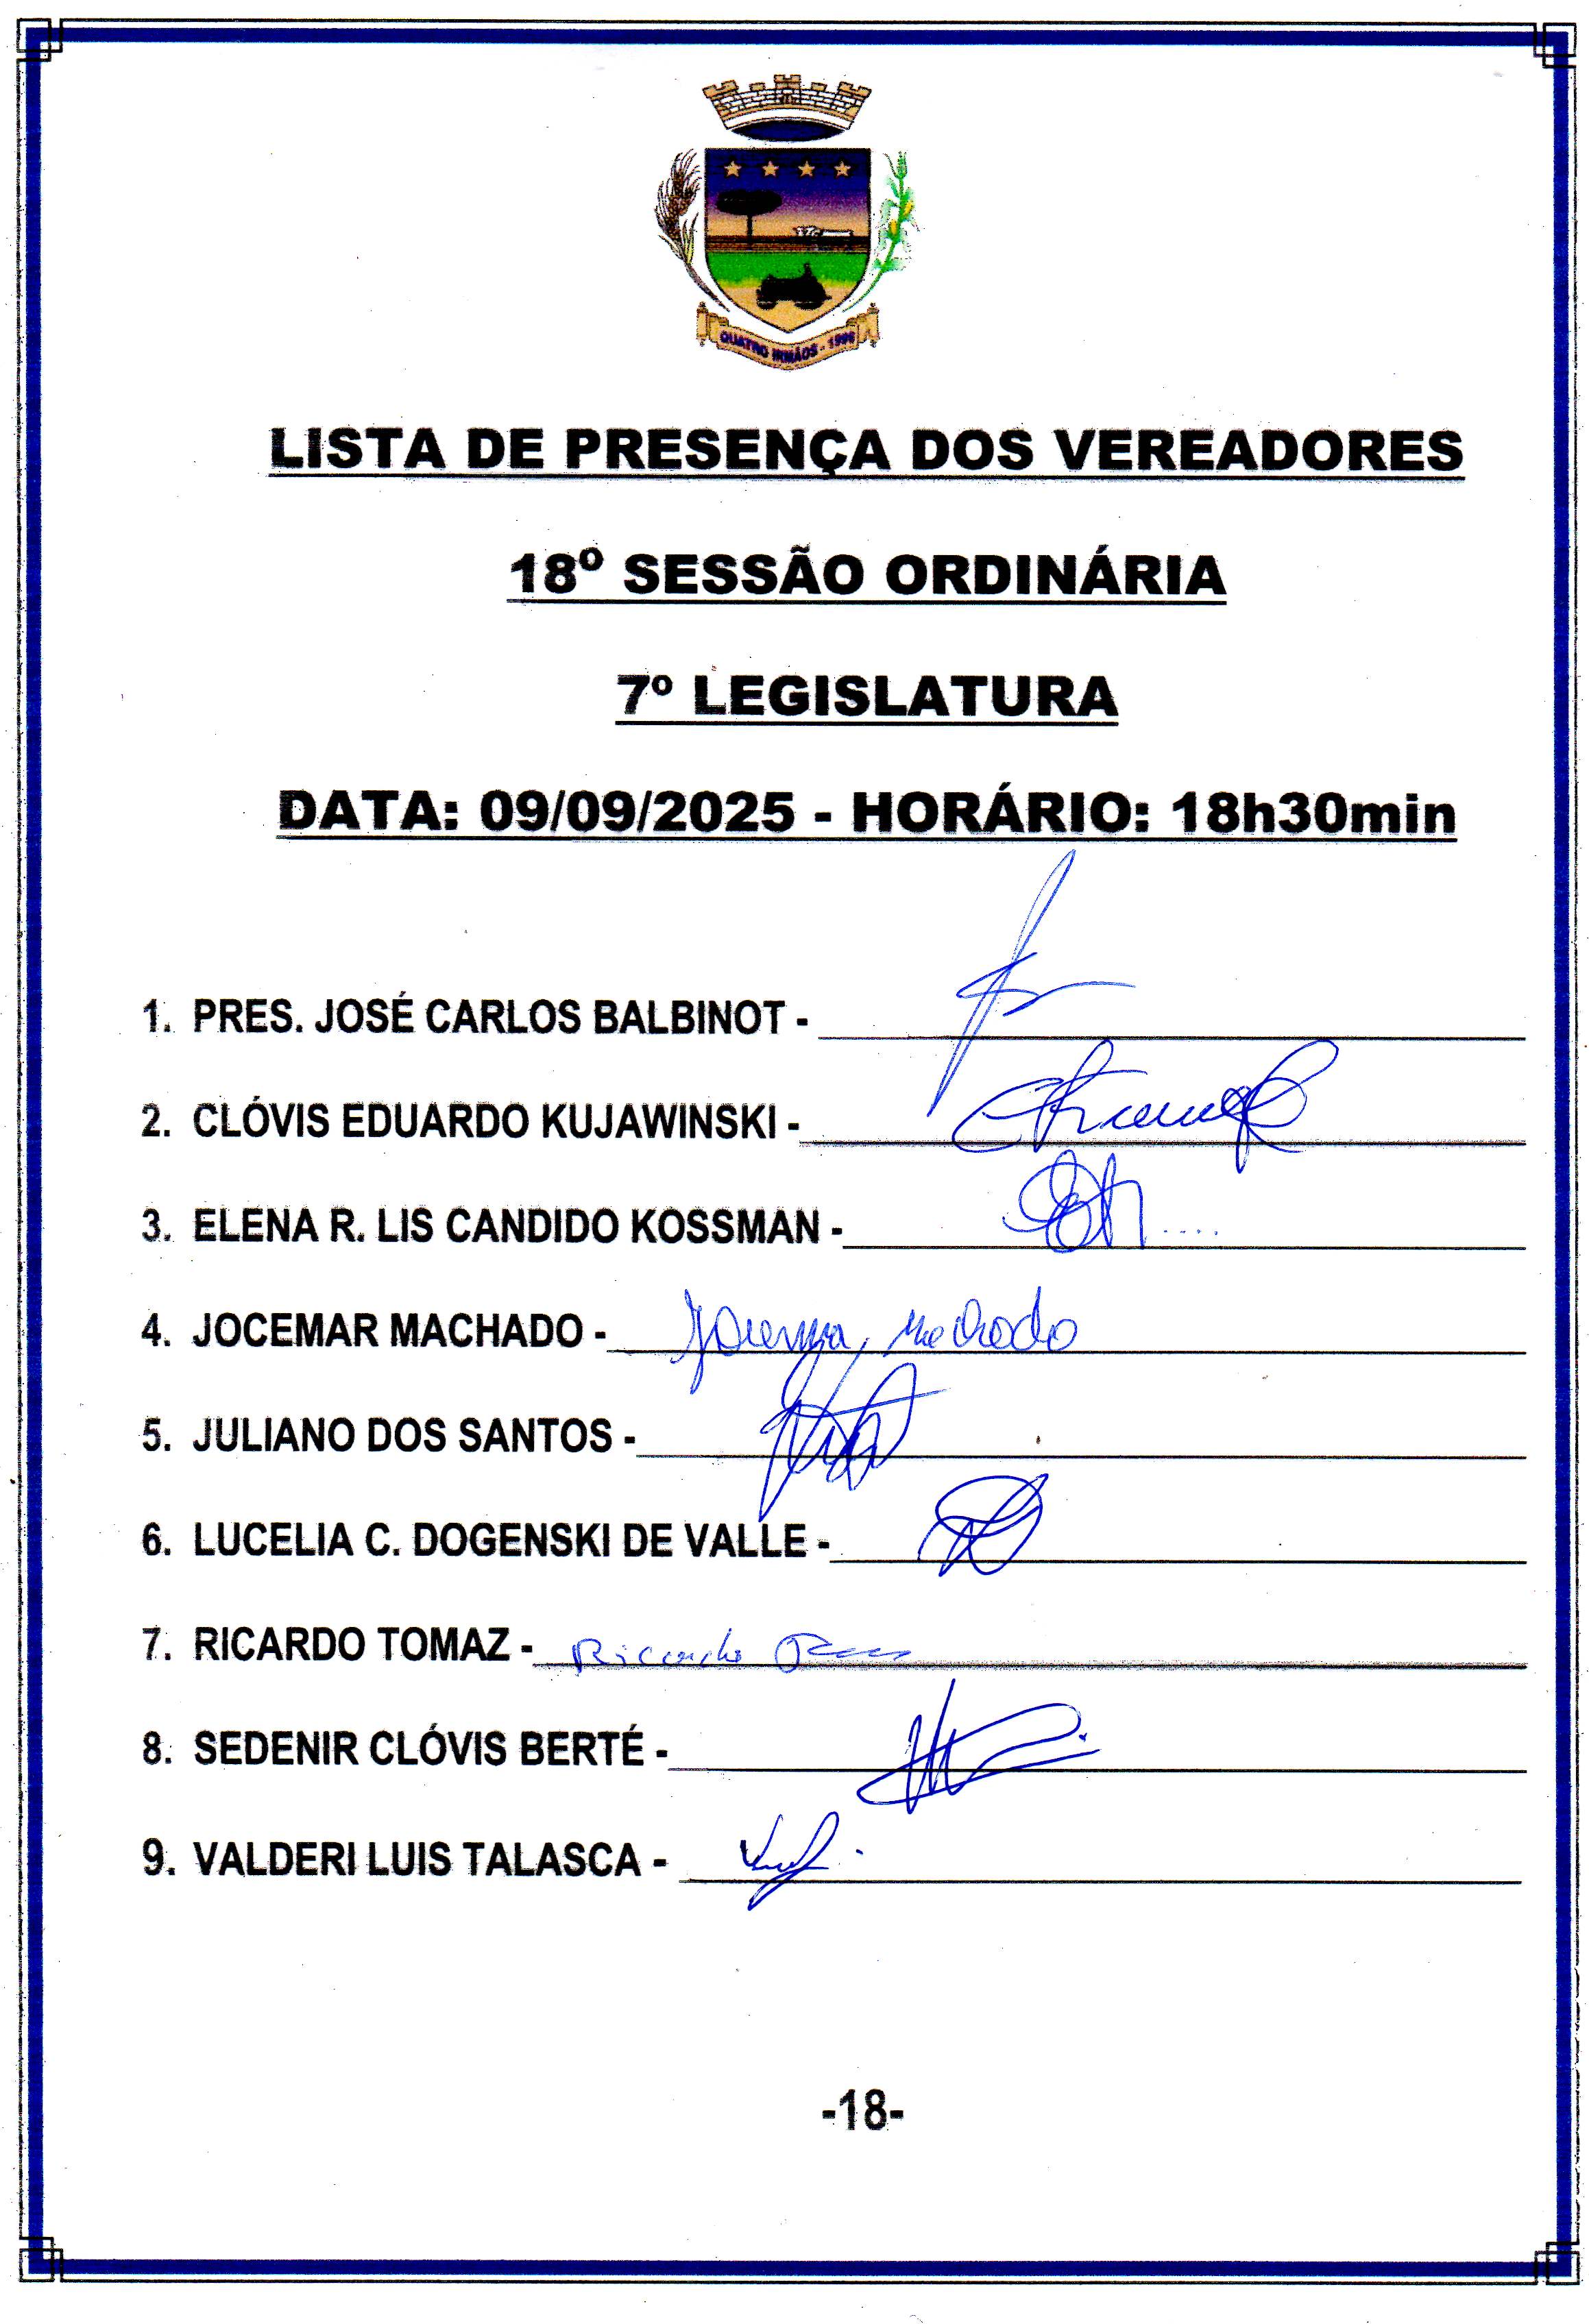 QUATRO IRMÃOS - 1996
LISTA DE PRESENÇA DOS VEREADORES
18º SESSÃO ORDINÁRIA
7º LEGISLATURA
DATA: 09/09/2025 - HORÁRIO: 18h30min
1. PRES. JOSÉ CARLOS BALBINOT -
2. CLÓVIS EDUARDO KUJAWINSKI -
3. ELENA R. LIS CANDIDO KOSSMAN -
4. JOCEMAR MACHADO - Jocemar Machado
5. JULIANO DOS SANTOS -
6. LUCELIA C. DOGENSKI DE VALLE -
7. RICARDO TOMAZ - Ricardo
8. SEDENIR CLÓVIS BERTÉ -
9. VALDERI LUIS TALASCA -
-18-